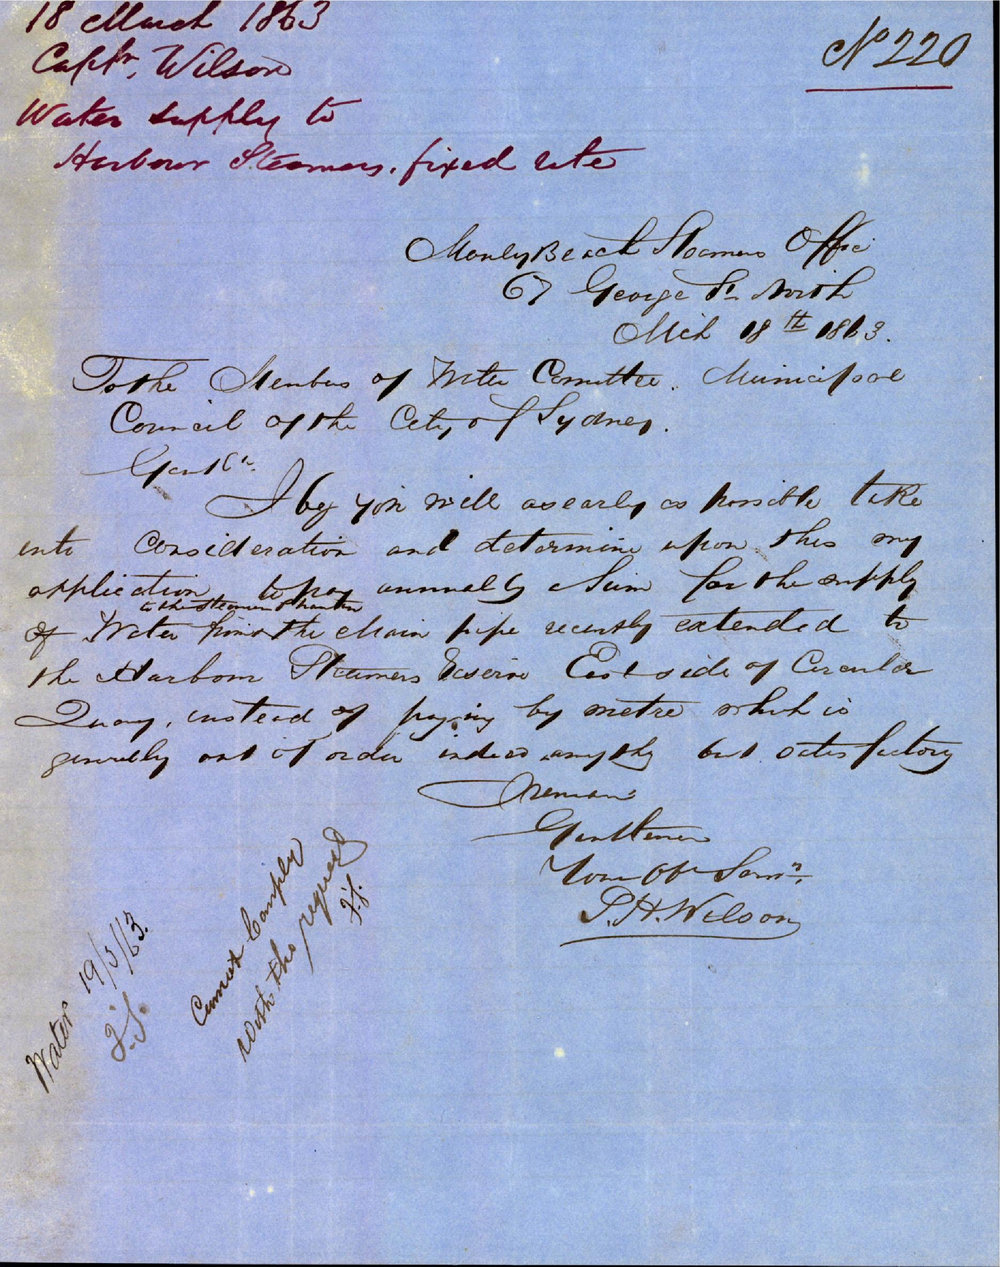 18 March 1863
Captn. Wilson
Water supply to
Harbour Steamers. fixed rate
No 220
Manly Beach Steamers Office
67 George St. North
Mch 18th 1863.
To the Members of Water Comittee. Municipal
Council of the City of Sydney.
Gentln.
I beg you will as early as possible take
into consideration and determine upon this my
application to pay annually a Sum for the supply
to the steamer Phantom
of Water from the Main pipe recently extended to
the Harbour Steamers Reserve East side of Circular
Quay, instead of paying by metre which is
generally out of order indeed anythg but satisfactory
I remain
Gentlemen
Your Obt Servt.
P. H. Wilson
Cannot Comply
with the request
J.S.
Water 19/3/63.
J.S.